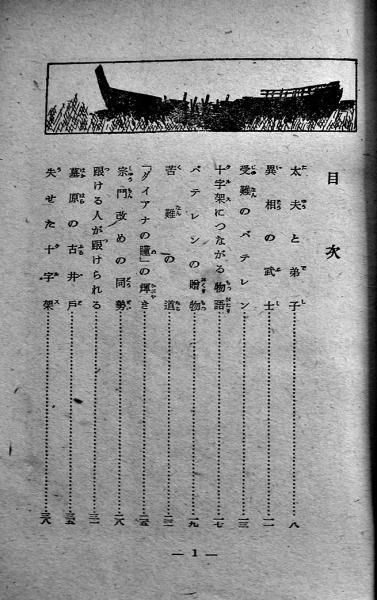 目次
太夫と弟子……八
異相の武士……一一
受難のバテレン……一三
十字架につながる物語……一七
バテレンの贈物……一九
苦難の道……二二
「ダイアナの瞳」の輝き……二五
宗門改めの同勢……二八
跟ける人が跟けられる……三一
墓原の古井戸……三五
失せた十字架……三八
— 1 —